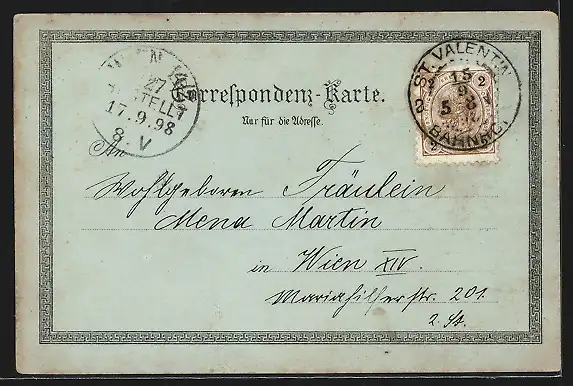 Correspondenz-Karte.
Nur für die Adresse.
ST. VALENTIN
15
9
5
BAHNHOF
2
WIEN
27
BESTELLT
17.9.98
8.V
An
Wohlgeboren Fräulein
Mena Martin
in Wien XIV.
Mariahilferstr. 201.
2. St.